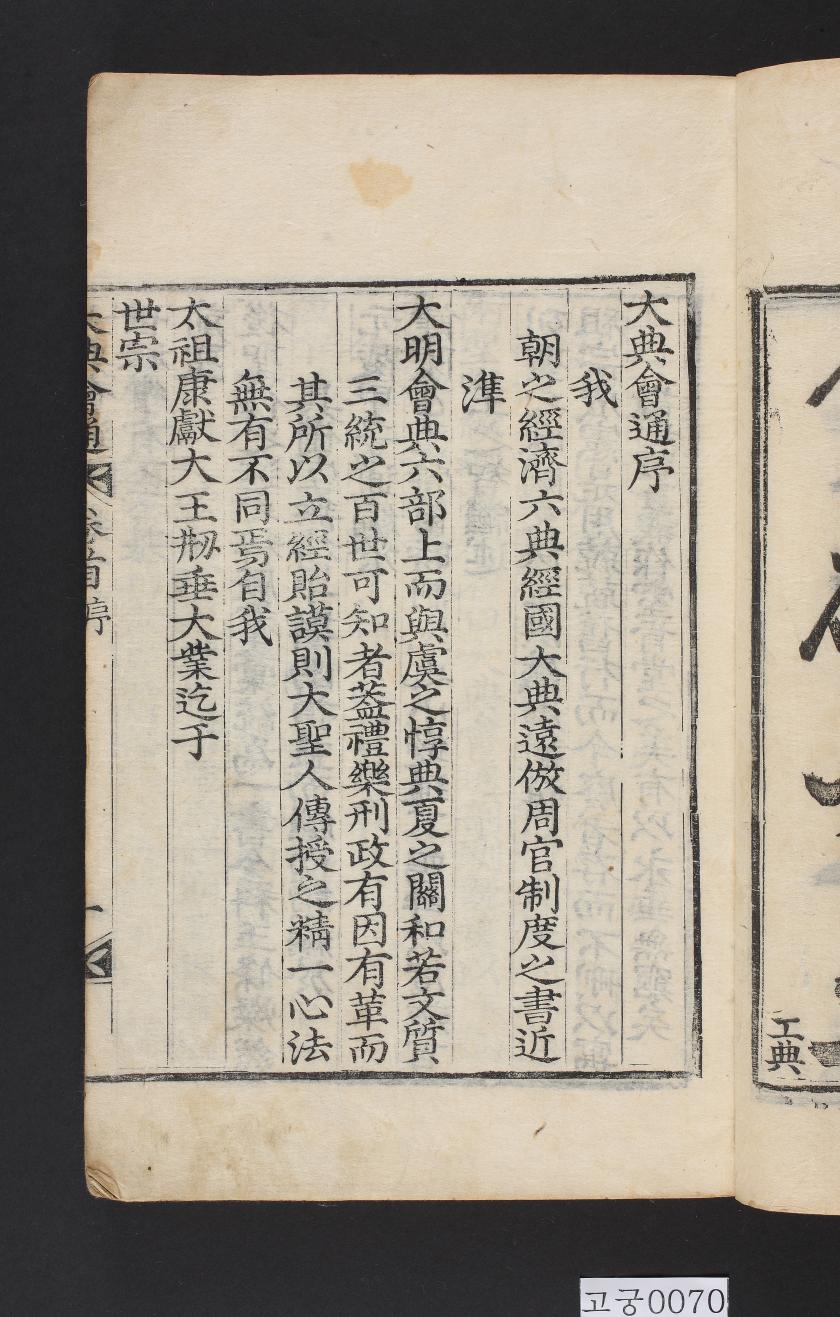 大典會通序
我
朝之經濟六典經國大典遠倣周官制度之書近
準
大明會典六部上而與虞之惇典夏之關和若文質
三統之百世可知者蓋禮樂刑政有因有革而
其所以立經貽謨則大聖人傳授之精一心法
無有不同焉自我
太祖康獻大王刱垂大業迄于
世宗
大典會通 卷首 序 一
工典
고궁0070